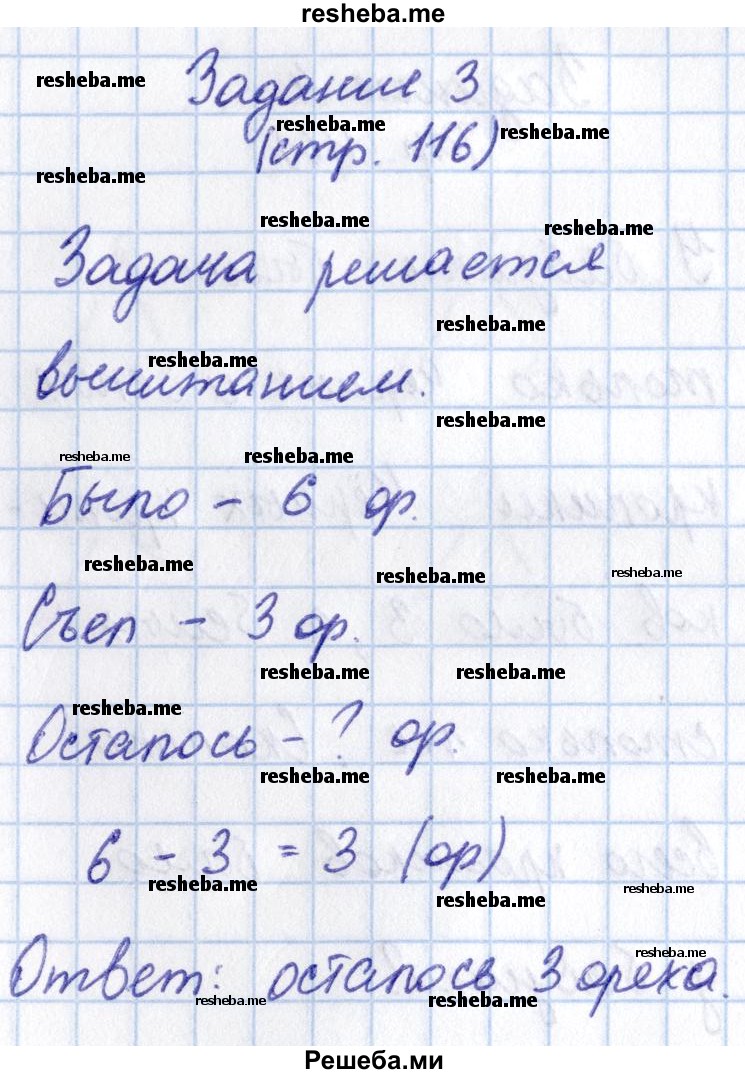 resheba.me
Задание 3
resheba.me
resheba.me
resheba.me
(стр. 116)
resheba.me
resheba.me
resheba.me
Задача решается
resheba.me
resheba.me
вычитанием.
resheba.me
resheba.me
resheba.me
Было - 6 ор.
resheba.me
resheba.me
resheba.me
Съел - 3 ор.
resheba.me
resheba.me
resheba.me
Осталось - ? ор.
resheba.me
resheba.me
6 - 3 = 3 (ор)
resheba.me
resheba.me
resheba.me
resheba.me
Ответ: осталось 3 ореха.
resheba.me
resheba.me
Решеба.ми